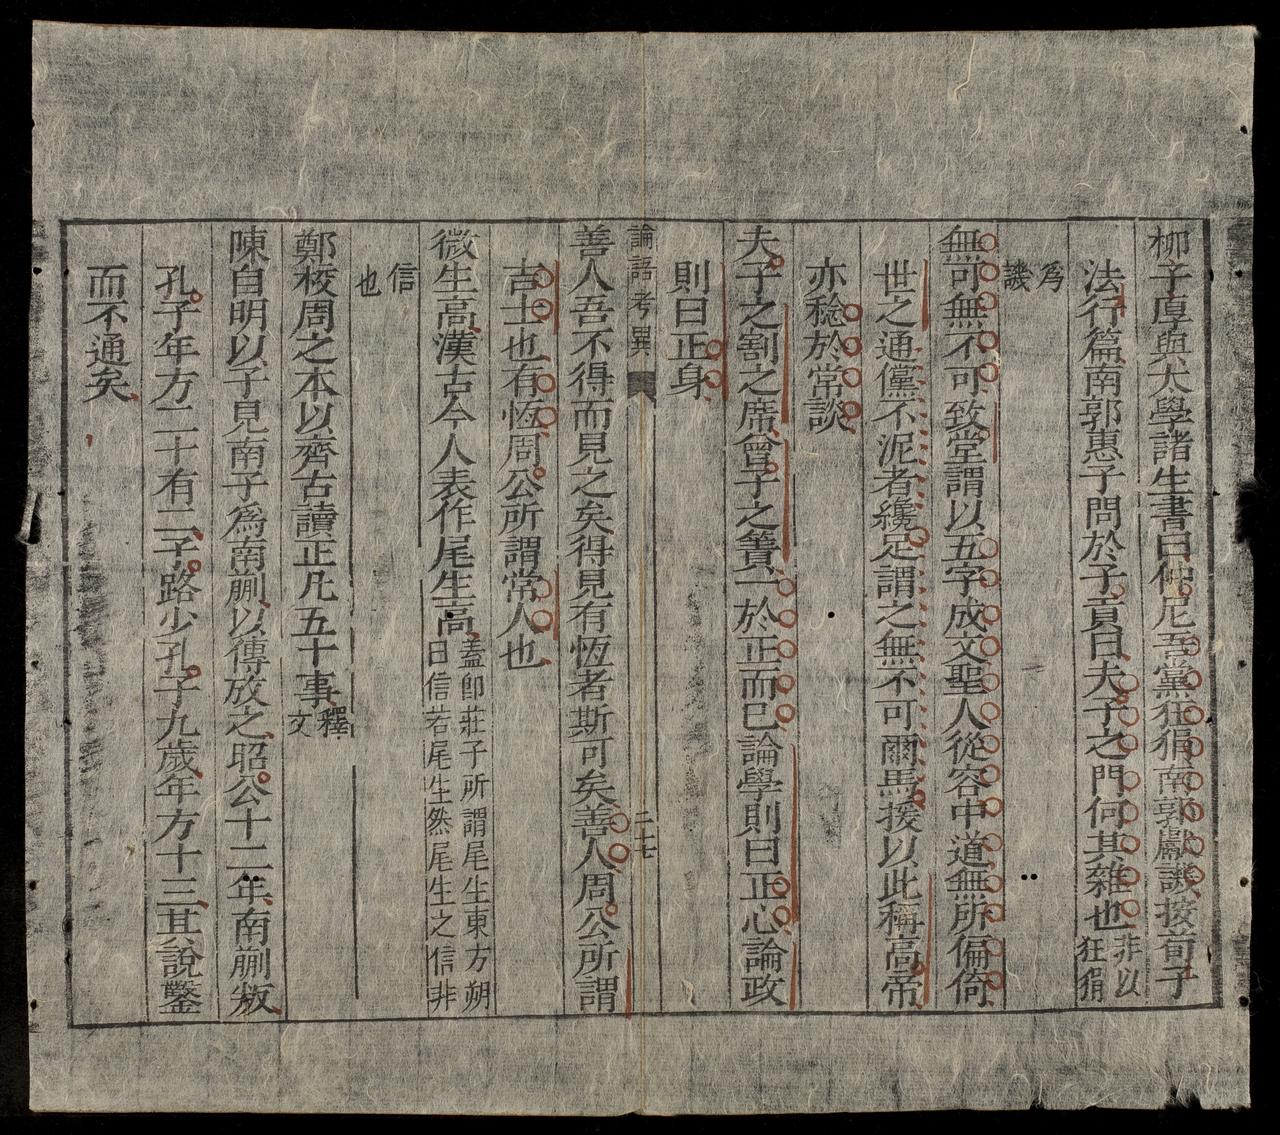 柳子厚與太學諸生書曰仲尼吾黨狂狷南郭獻譏按荀子
法行篇南郭惠子問於子貢曰夫子之門何其雜也非以狂狷
爲譏
無可無不可致堂謂以五字成文聖人從容中道無所偏倚
世之通儻不泥者纔足謂之無不可爾馬援以此稱高帝
亦稔於常談
夫子之割之席曾子之簀一於正而已論學則曰正心論政
則曰正身
論語考異 二七
善人吾不得而見之矣得見有恆者斯可矣善人周公所謂
吉士也有恆周公所謂常人也
微生高漢古今人表作尾生高蓋卽莊子所謂尾生東方朔曰信若尾生然尾生之信非
信也
鄭校周之本以齊古讀正凡五十事釋文
陳自明以子見南子爲南蒯以傳攷之昭公十二年南蒯叛
孔子年方二十有二子路少孔子九歲年方十三其說鑿
而不通矣